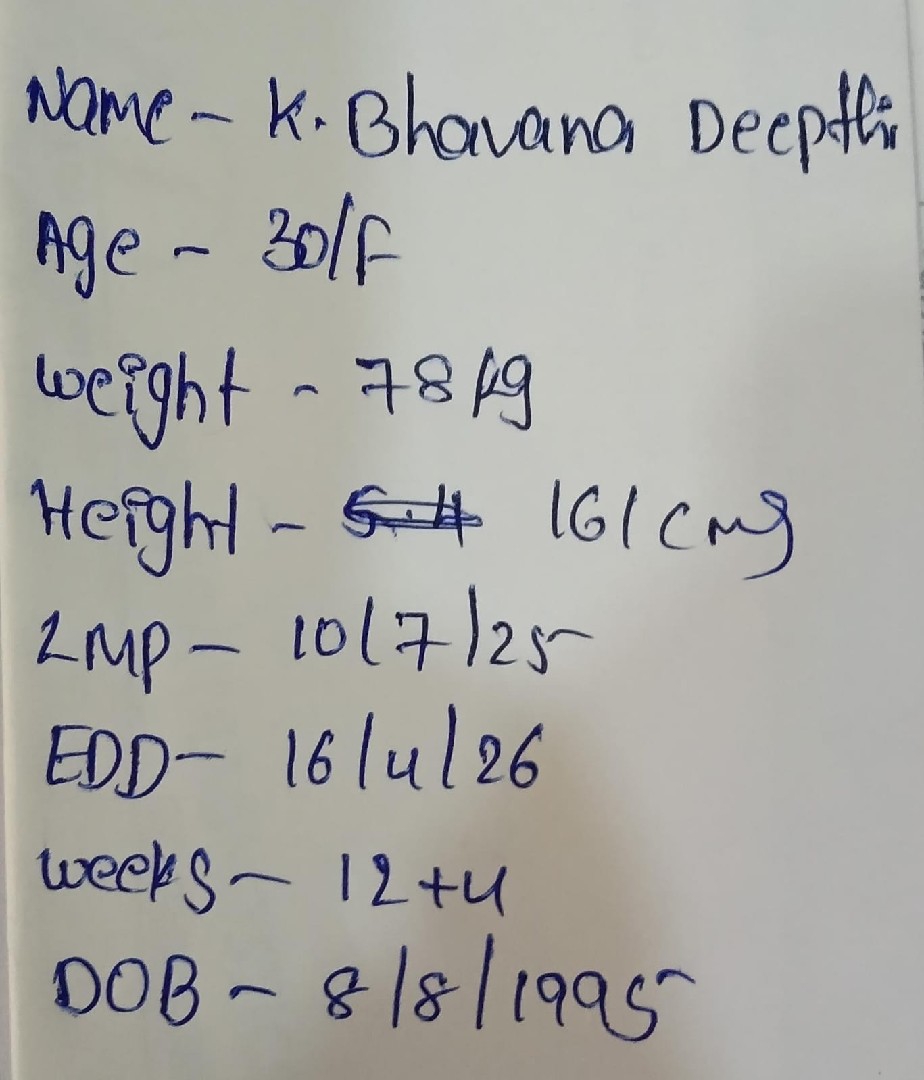 Name - K. Bhavana Deepthi
Age - 30/F
weight - 78 kg
Height - 5.4 161 cms
LMP - 10/7/25
EDD - 16/4/26
weeks - 12+4
DOB - 8/8/1995